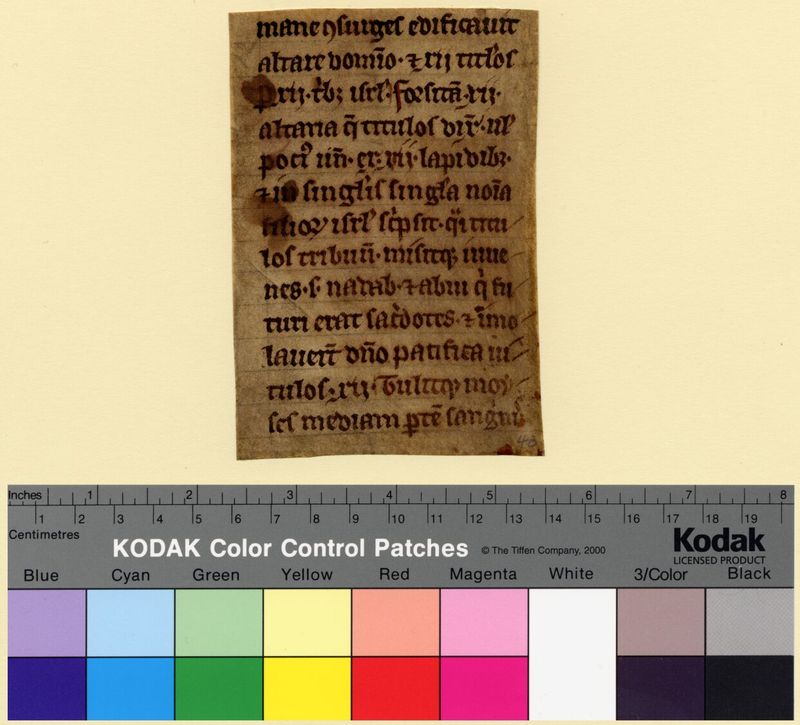 mane ꝯsurges edificauit
altare domīo · ⁊ xij titłos
ꝑ xij · tͥbꝫ isrł · forsitā · xij ·
altaria q̄ titulos dix̄ · uł
lapidibꝫ ·
⁊ in singłis singła noīa
filioꝝ isrł sc̄psit · titu
los tribuū · misitqꝫ iuue
nes · s · nadab · ⁊ abiu q̇ fu
turi erāt sac̄dotes · ⁊ īmo
lauert̄ dn̄o pacifica ui
tulos · xij · Tulitqꝫ moy
ses mediam ꝑtē sanguīs
40
Inches 1 2 3 4 5 6 7 8
1 2 3 4 5 6 7 8 9 10 11 12 13 14 15 16 17 18 19
Centimetres
KODAK Color Control Patches © The Tiffen Company, 2000 Kodak
LICENSED PRODUCT
Blue Cyan Green Yellow Red Magenta White 3/Color Black